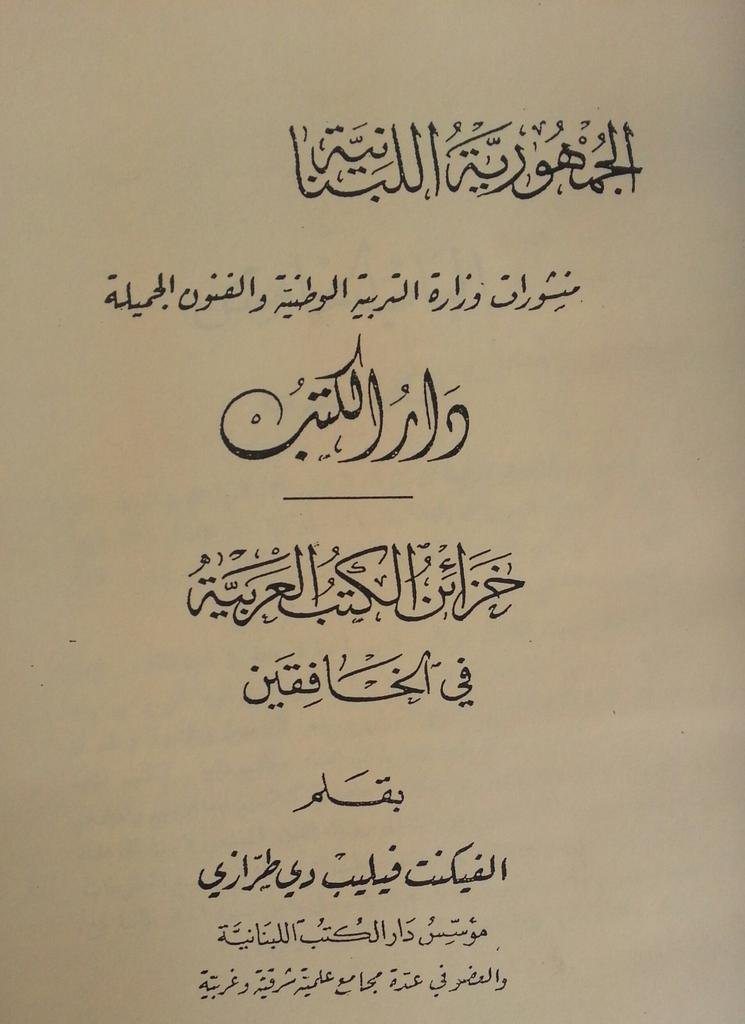 الجُمهُوريَّةُ اللبنَانيَّة
منشورات وزارة التربية الوطنية والفنون الجميلة
دَارُ الكتبُ
خَزَائنُ الكتبُ العَرَبيَّةُ
في الخَافِقَين
بقلم
الفيكنت فيليب دي طرّازي
مؤسِّسُ دَار الكُتبُ اللبنَانيَّة
والعضو في عدّة مجامع علمية شرقية وغربية